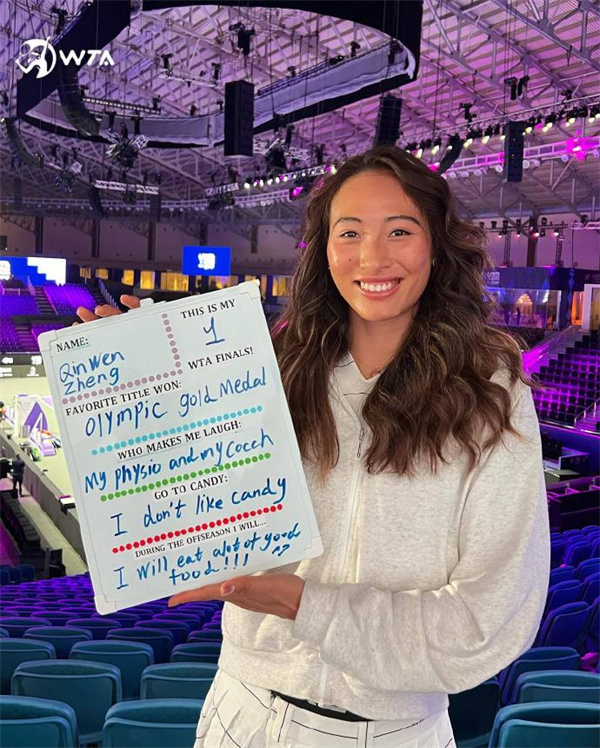 WTA
NAME:
QinWen
Zheng
THIS IS MY
1
WTA FINALS!
FAVORITE TITLE WON:
Olympic gold Medal
WHO MAKES ME LAUGH:
My physio and my coach
GO TO CANDY:
I don't like candy
DURING THE OFFSEASON I WILL...
I will eat alot of good
food!!!